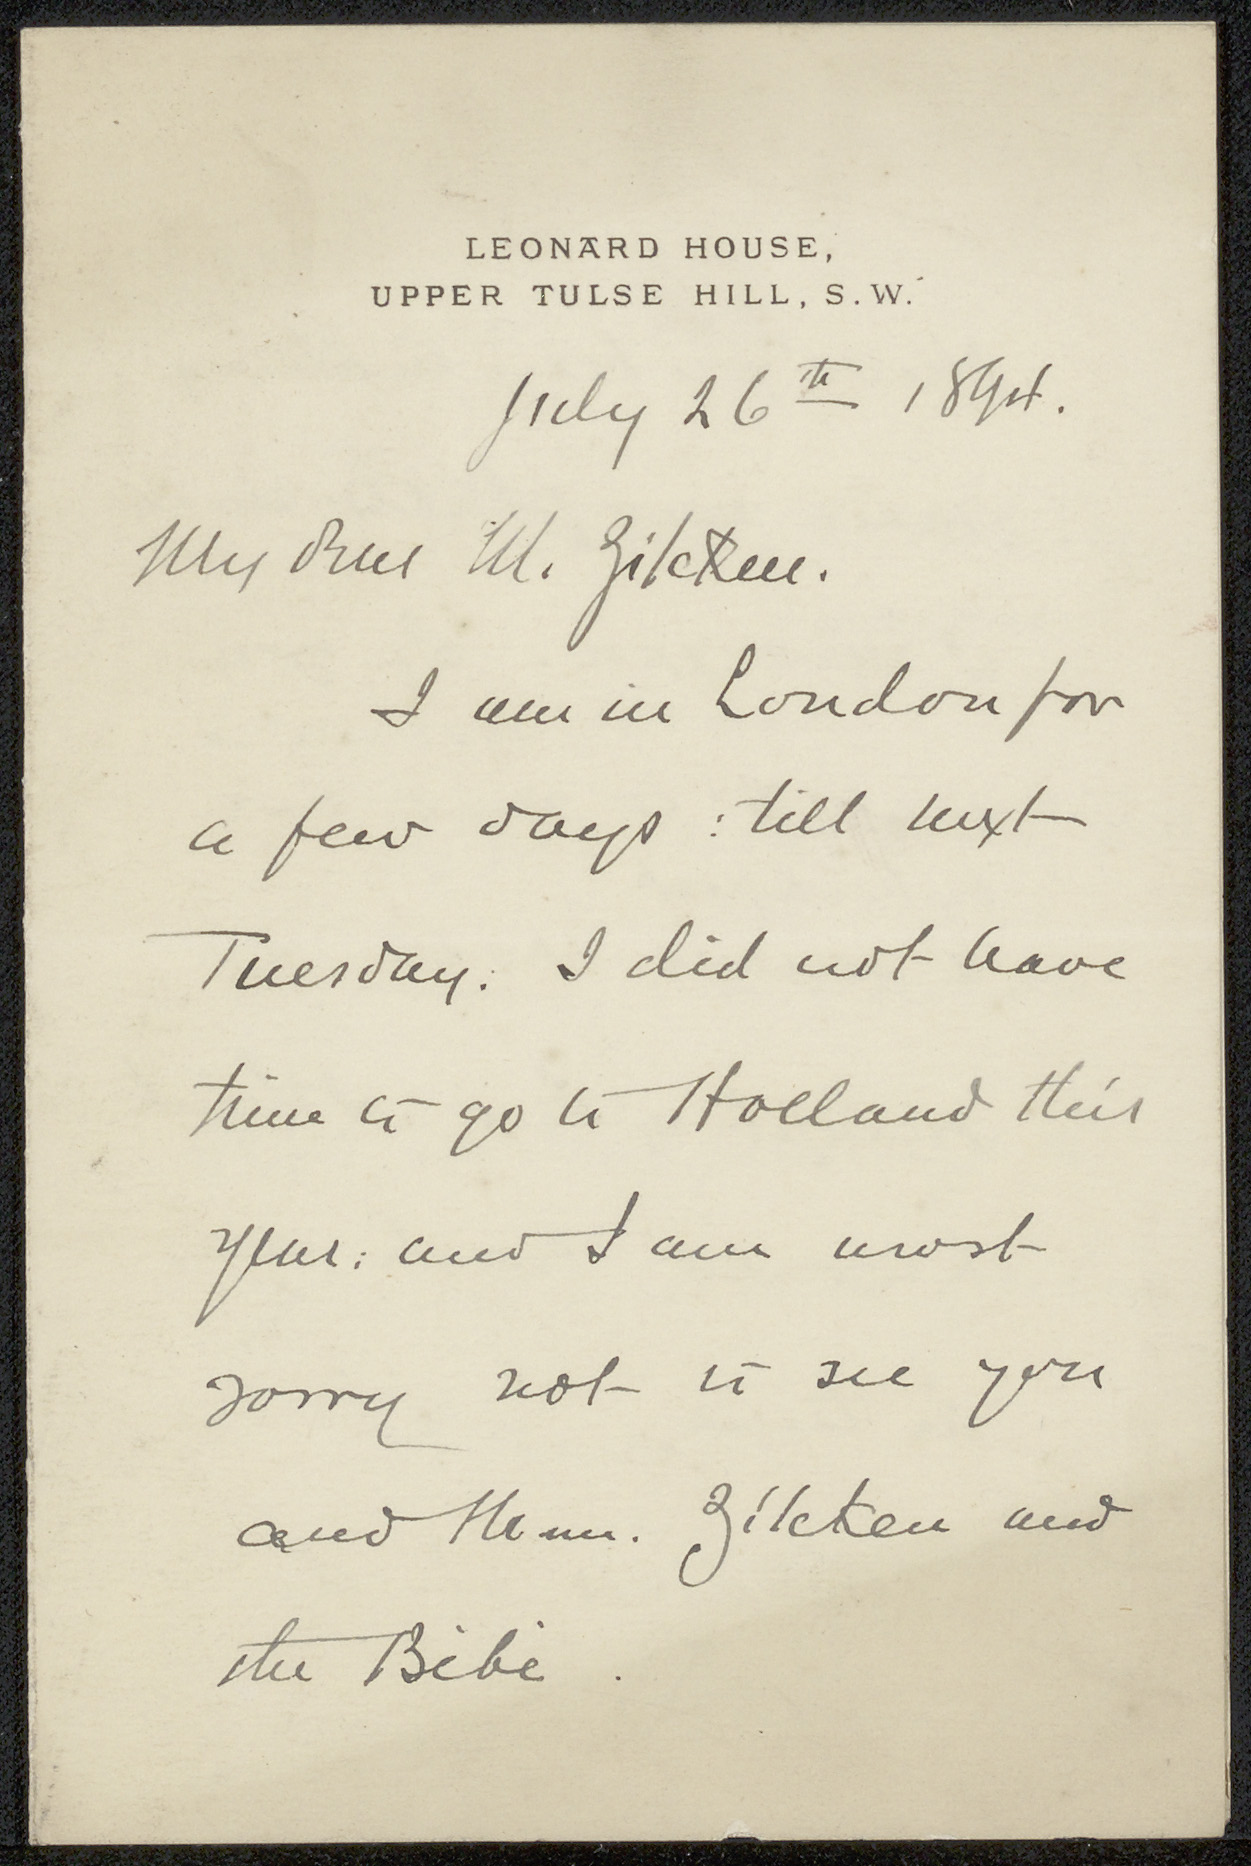 LEONARD HOUSE,
UPPER TULSE HILL, S.W.
July 26th 1894.
My dear M. Zilcken.
I am in London for
a few days : till next
Tuesday. I did not have
time to go to Holland this
year: and I am most
sorry not to see you
and Mme. Zilcken and
the Bébé.